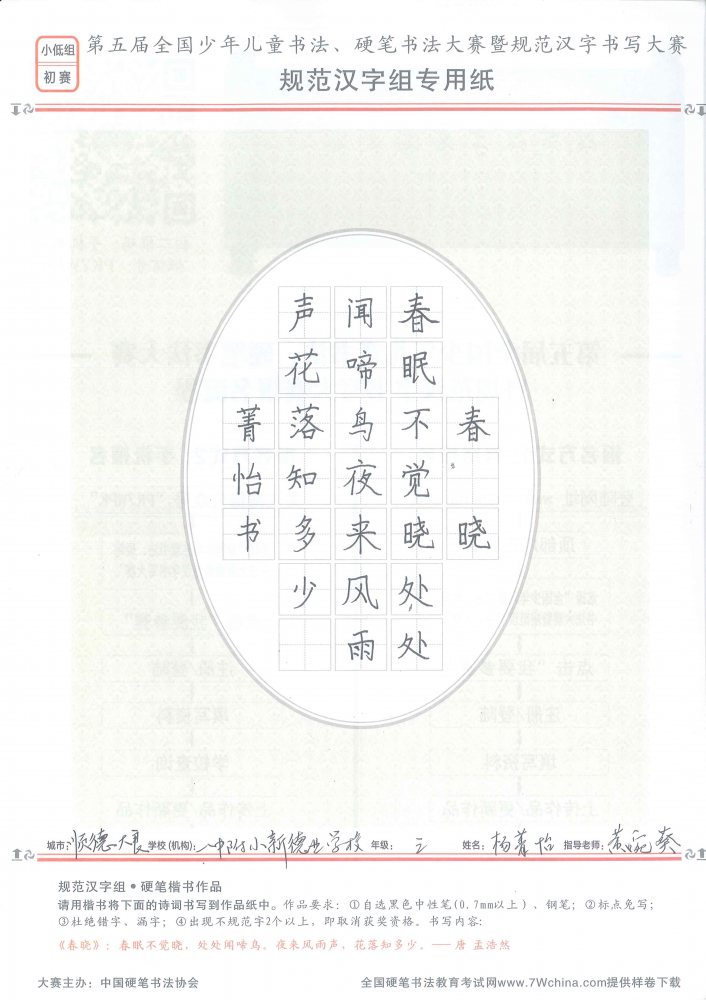 小低组
初赛
第五届全国少年儿童书法、硬笔书法大赛暨规范汉字书写大赛
规范汉字组专用纸
春晓
春眠不觉晓处处
闻啼鸟夜来风雨
声花落知多少
菁怡书
城市：顺德大良 学校(机构)：中附小新德业学校 年级：三 姓名：杨菁怡 指导老师：黄婉
规范汉字组●硬笔楷书作品
请用楷书将下面的诗词书写到作品纸中。作品要求：①自选黑色中性笔(0.7mm以上)、钢笔；②标点免写；
③杜绝错字、漏字；④出现不规范字2个以上，即取消获奖资格。书写内容：
《春晓》：春眠不觉晓，处处闻啼鸟。夜来风雨声，花落知多少。——唐 孟浩然
大赛主办：中国硬笔书法协会
全国硬笔书法教育考试网www.7Wchina.com提供样卷下载